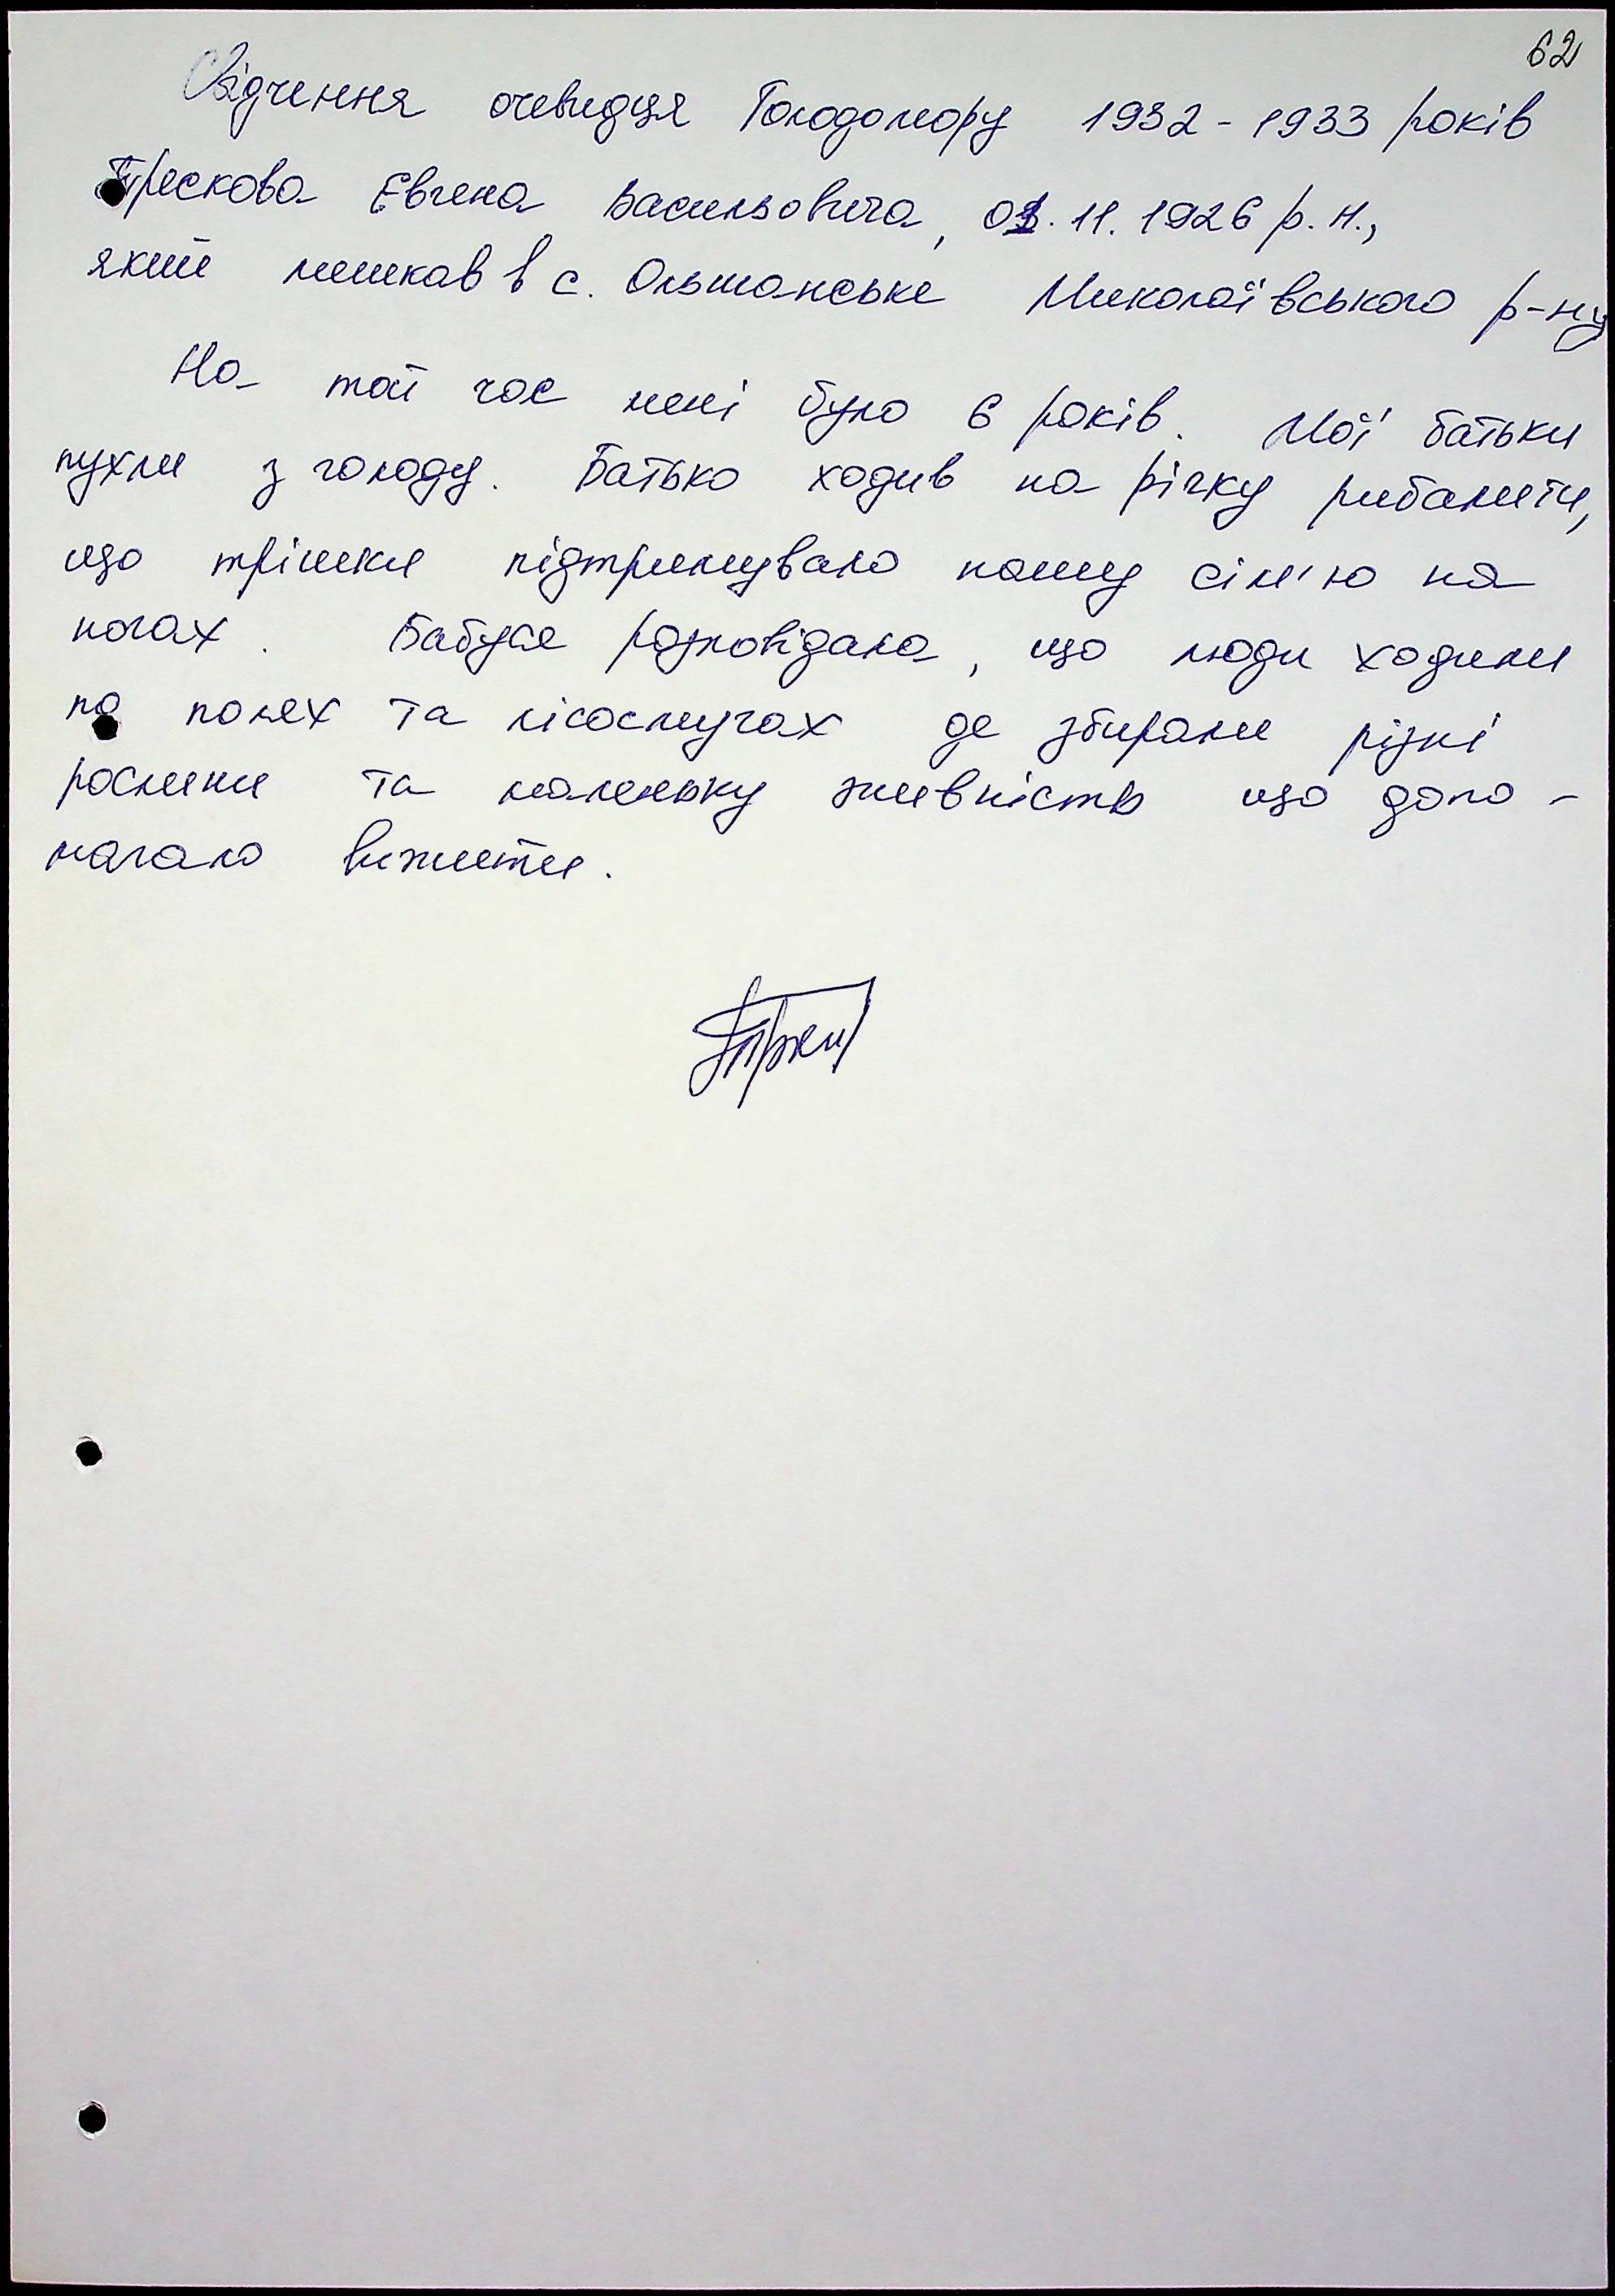 62
Свідчення очевидця Голодомору 1932 - 1933 років
Євгена Васильовича, 11. 1926 р. н.,
який мешкав в с. Ольшанське Миколаївського р-ну
На той час мені було 6 років. Мої батьки
пухли з голоду. Батько ходив на річку рибалити,
що трішки підтримувало нашу сім'ю на
ногах. Бабуся розповідала, що люди ходили
по полях та лісосмугах де збирали різні
рослини та маленьку живність що допо-
магало вижити.